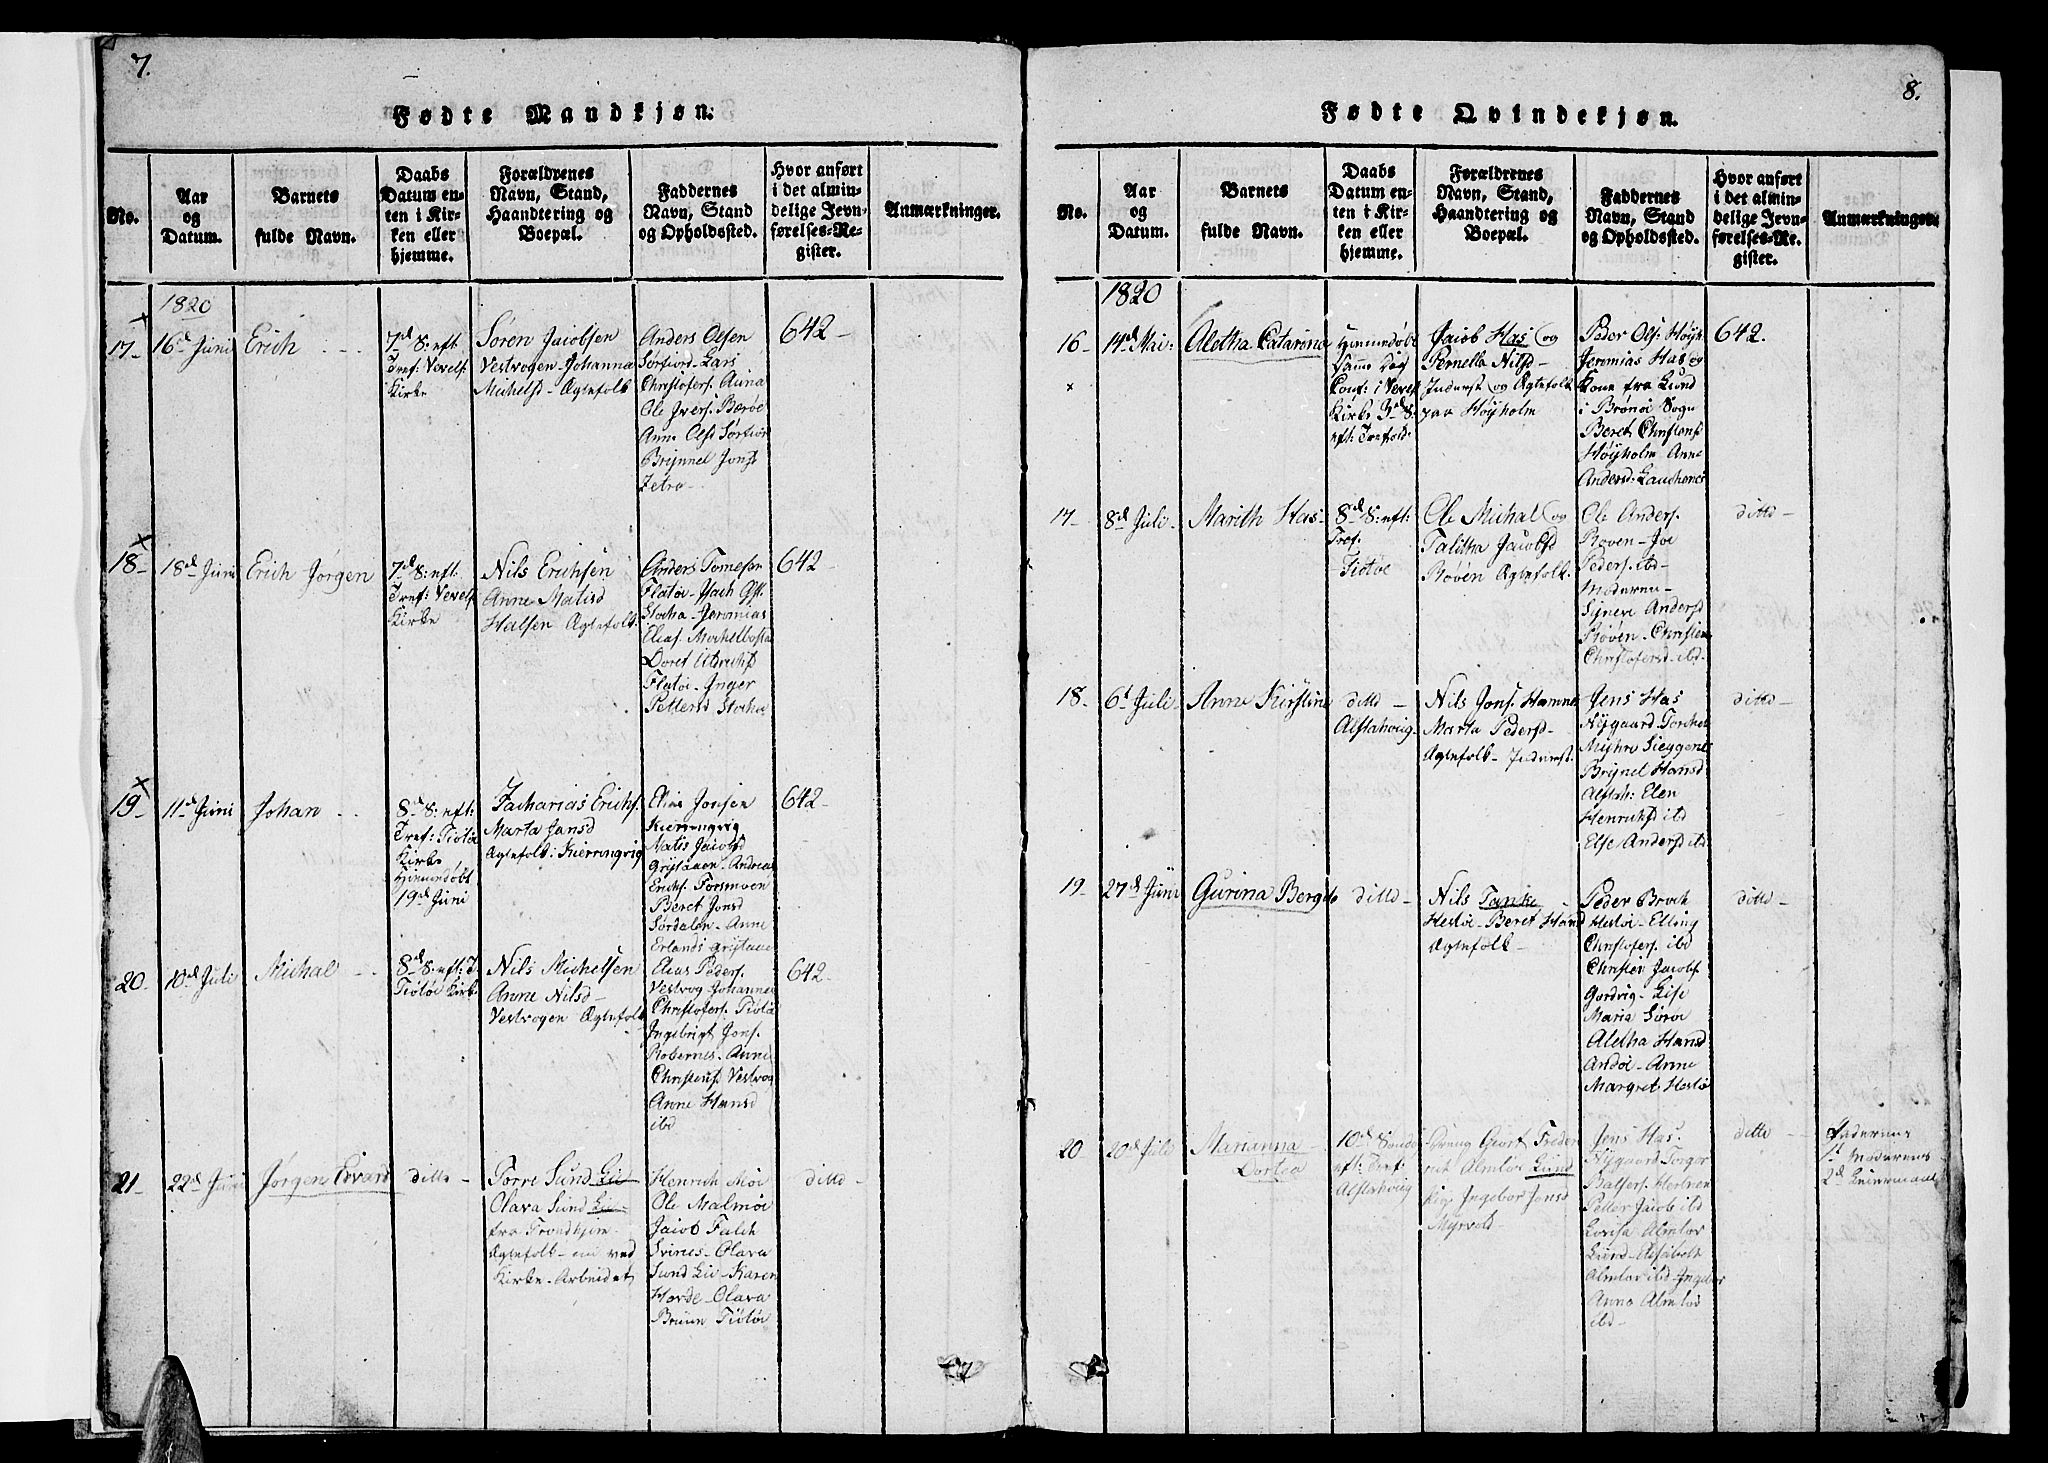 7.
Fødte Mandkjøn.
No.
Aar
og
Datum.
Barnets
fulde Navn.
Daabs
Datum en-
ten i Kir-
ken eller
hjemme.
Forældrenes
Navn, Stand,
Haandtering og
Boepæl.
Faddernes
Navn, Stand
og Opholdssted.
Hvor anført
i det almin-
delige Jevn-
førelses-Re-
gister.
Anmærkninger.
1820
17-
16d Juni
Erich
7d S: eft
Tref: Vevels
Kirke
Søren Jacobsen
Vestvogen - Johanna
Michelsd - Ægtefolk
Anders Olsen
Sørfiord - Lars
Christofers. Auna
Ole Ivers. Berøe
Anne Olsd Sørfiord
Brynnel Jonsd
Zetra
642 -
18-
18d Juni
Erich Jørgen
7d S: eft:
Tref: Vevels
Kirke
Nils Erichsen
Anne Matisd
Halsen Ægtefolk.
Anders Tomesen
Flatøi - Isach
Stocka - Jeromias
Elias. Mochelbosta
Doret
Flatøi - Inger
Pettersd Stocka
642 -
19-
11d Juni
Johan
8d S: eft:
Tref: Tiøtø
Kirke
Hiemedøbt
19d Juni
Zacharias Erichs.
Marta Jansd
Ægtefolk: Kierringvig
Elias Jonsen
Kierringvig
Matis Jacobsd
Grytaaen - Andreas
Erichs. Forsmoen
Beret Jonsd
Sørdalen - Anne
Erlands Grytaae
642 -
20-
10d Juli
Michal
8d S: eft: T
Tiøtøi Kirke
Nils Michelsen
Anne Nilsd -
Vestvogen Ægtefolk
Elias Peders.
Vestvog Johannes
Christofers. Tiøtø
Ingebrigt Jons.
Robernes - Anne
Christens. Vestvog
Anne Hansd
ibd
642 -
21-
22d Juni
Jørgen Edvard
ditto -
Torre Sund Lie
Olava Sund Lie
fra Trondhiem
Ægtefolk - nu ved
Kirke - Arbeidet
Henrich Moe
Ole Malmøi
Jacob Falch
Svines - Olava
Sund Lie - Karen
Horde - Olava
Bruun Tiøtøi
ditto -
8.
Fødte Qvindekjøn.
No.
Aar
og
Datum.
Barnets
fulde Navn.
Daabs
Datum en-
ten i Kir-
ken eller
hjemme.
Forældrenes
Navn, Stand,
Haandtering og
Boepæl.
Faddernes
Navn, Stand
og Opholdssted.
Hvor anført
i det almin-
delige Jevn-
førelses-Re-
gister.
Anmærkninger.
1820
16-
14d Mai:
Aletha Catarina
Hiemmedøbt
Samme Dag
Conf: i Vevels
Kirke 3d S.
eft: Trefold:
Jacob Has og
Pernella Nilsd -
Inderst og Ægtefolk
paa Høyholm
Peder Ols. Høyh
Jeremias Has og
Kone fra Lund
i Brønøi Sogn
Beret Christens.
Høyholm Anne
Andersd.
642.
17-
8d Juli -
Marith Has -
8d S: eft:
Tref.
Tiøtøe
Ole Michal og
Talitha Jacobsd
Røven Ægtefolk.
Ole Anders.
Røven -
Peders. ibd -
Moderen -
Andersd
Røven - Christen
Christofersd - ibd.
ditto -
18.
6t Juli -
Anne Kirstine
ditto -
Alstahoug -
Nils Jons. Hamne
Marta Pedersd -
Ægtefolk - Inderst.
Jens Has
Nygaard - Torchel
Myhre
Brynel Hansd
Alstah: Elen
Henrichsd ibd
Else Andersd ibd
ditto -
19-
27d Juni
Gurina Bergita
ditto -
Nils Tanke -
Hestøi - Beret Hansd
Ægtefolk -
Peder Broch
Hestøi - Elling
Christofers. ibd
Christen Jacobs.
Gaardvig - Lise
Maria Sørøi
Aletha Hansd
Andøi - Anne
Margret Hestøi
ditto -
20.
20d Juli
Marianna
Dortea
10d Sønda
eft: Tref:
Alstahoug
Dreng Giert Freder
rick Almlov Lund
Pige Ingebor Jonsd
Myrvold -
Jens Has.
Nygaard Torger
Balsers.
Petter Jacob ibd
Lovisa Almlov
Lund - Elisabeth
Almlov ibd - Ingebor
Anna Almlov
ibd -
ditto -
Faderens
1t Moderens
2d Leiermaal